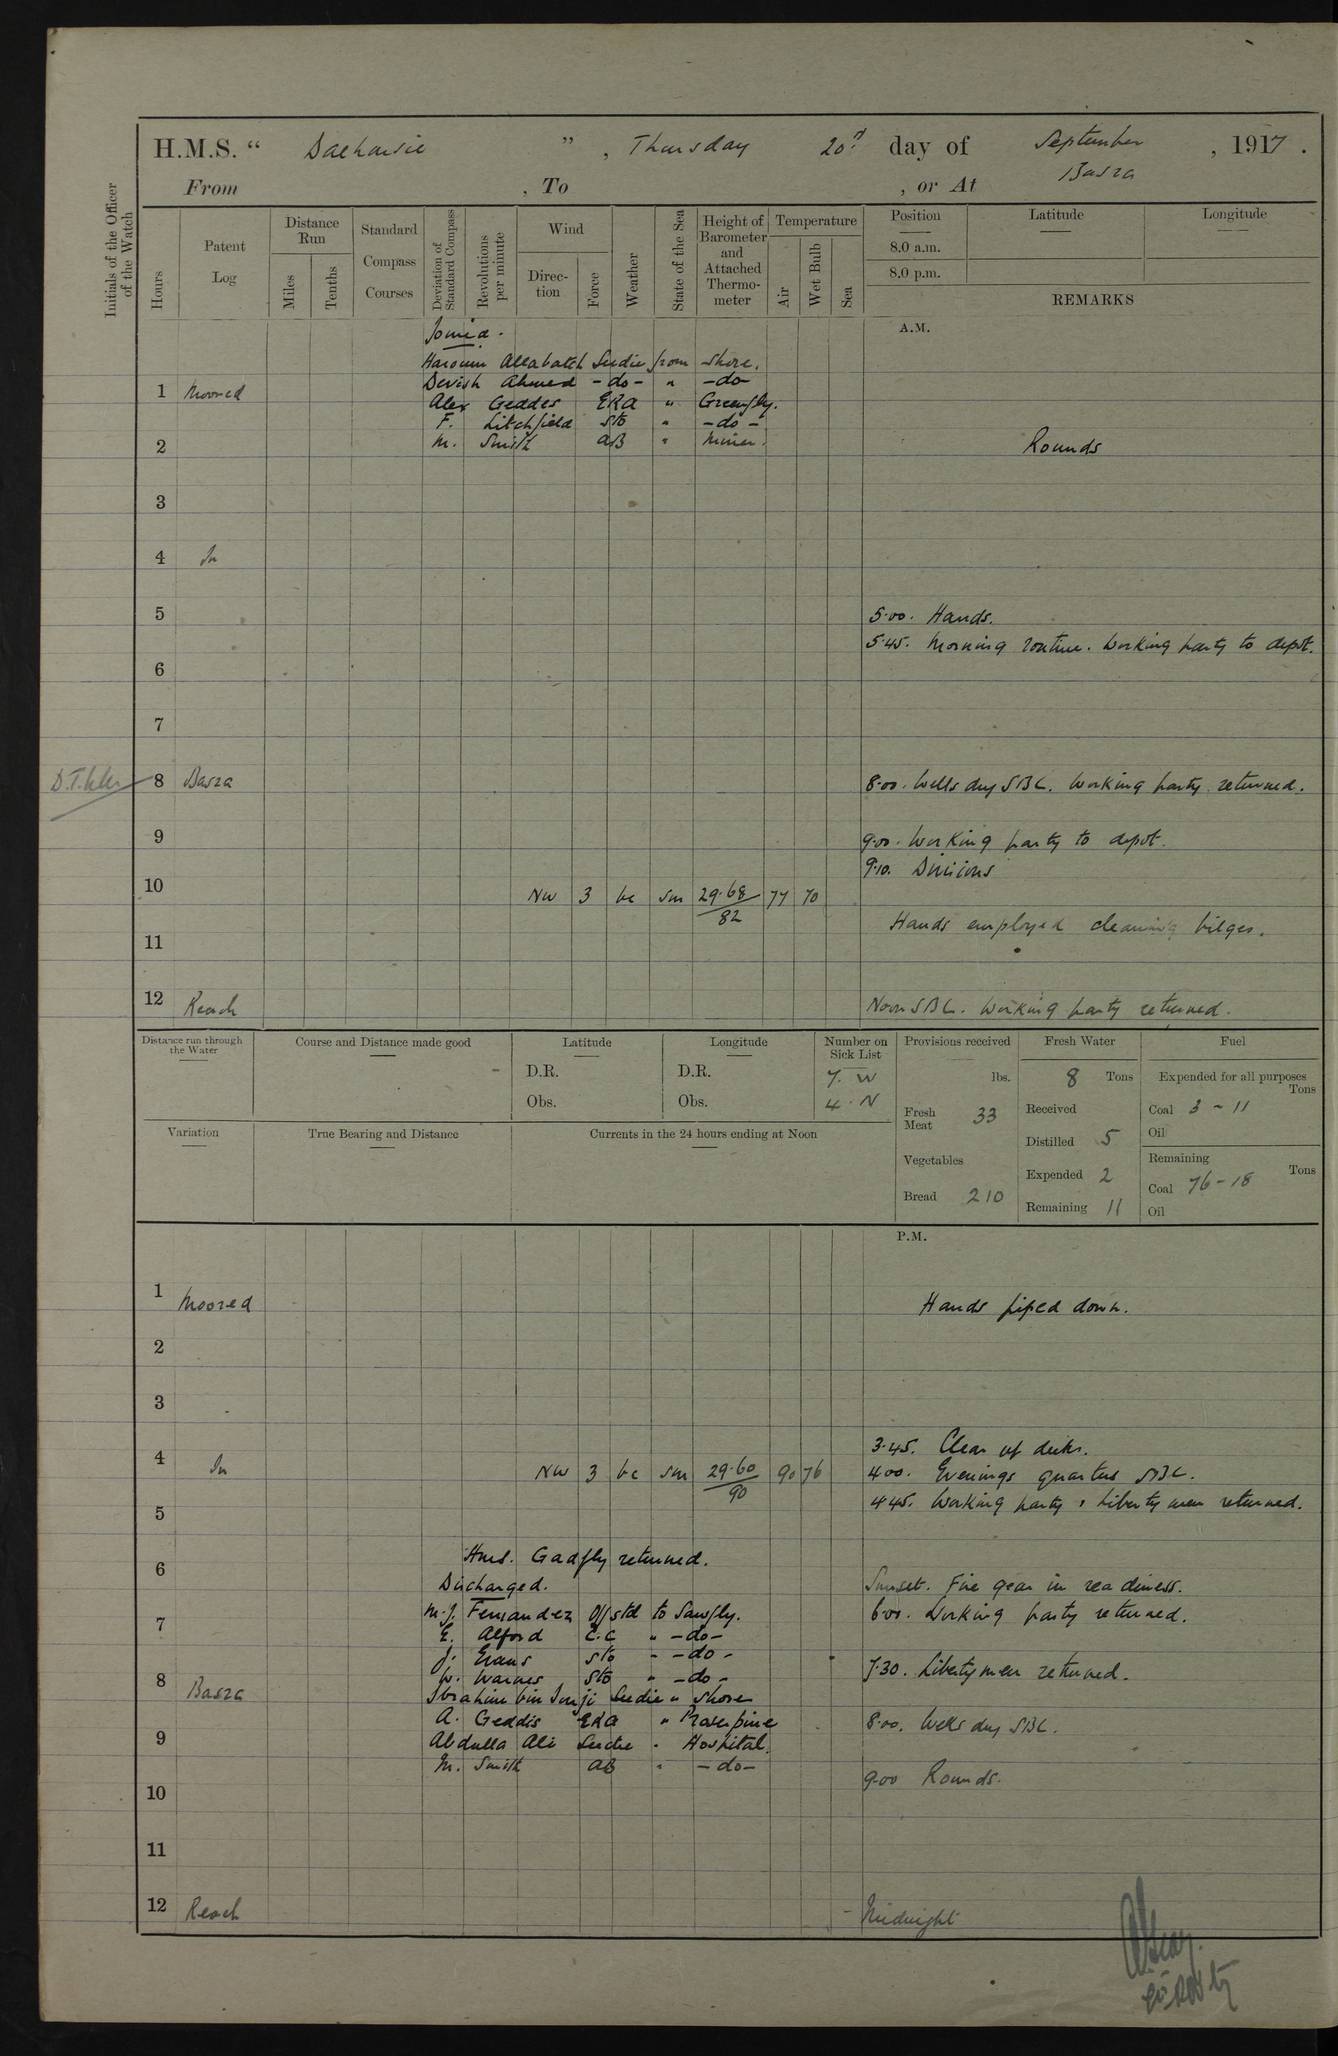 H.M.S. “ Dalhousie ” , Thursday 20th day of September , 1917 .
From , To , or At Basra
Initials of the Officer of the Watch
Hours
Patent Log
Distance Run
Miles
Tenths
Standard Compass Courses
Deviation of Standard Compass
Revolutions per minute
Wind
Direction
Force
Weather
State of the Sea
Height of Barometer and Attached Thermometer
Temperature
Air
Wet Bulb
Sea
Position Latitude Longitude
8.0 a.m.
8.0 p.m.
REMARKS
A.M.
Joined.
Haroun Allabatch Seedie from Shore.
Devish Ahmed -do- " -do-
1 Moored
Alex Geddes ERA " Greenfly.
F. Litchfield Sto " -do-
M. Smith AB "
2 Rounds
3
4 In
5 5.00. Hands.
5.45. Morning routine. Working party to depot.
6
7
8 Basra 8.00. Wells dry SBC. Working party returned.
9 9.00. Working party to depot.
9.10. Divisions
10 NW 3 bc sm 29.68 / 82 77 70
Hands employed cleaning bilges.
11
12 Reach Noon SBC. Working party returned.
Distance run through the Water
Course and Distance made good
Latitude
D.R.
Obs.
Longitude
D.R.
Obs.
Number on Sick List
7. W
4. N
Provisions received
lbs.
Fresh Meat 33
Vegetables
Bread 210
Fresh Water
8 Tons
Received
Distilled 5
Expended 2
Remaining 11
Fuel
Expended for all purposes
Tons
Coal 3 - 11
Oil
Remaining
Tons
Coal 76 - 18
Oil
Variation
True Bearing and Distance
Currents in the 24 hours ending at Noon
P.M.
1 Moored Hands piped down.
2
3
3.45. Clear up decks.
4 In NW 3 bc sm 29.60 / 90 90 76 4.00. Evenings quarters SBC.
4.45. Working party & Liberty men returned.
5
HMS. Gadfly returned.
6
Discharged. Sunset. Fire gear in readiness.
M.J. Fernandez Off std to Sawfly. 6.00. Working party returned.
7
E. Alford C.C " -do-
J. Evans Sto " -do-
7.30. Liberty men returned.
W. Warnes Sto " -do-
8 Basra
Ibrahim bin Seedie " Shore
A. Geddis ERA " Proserpine 8.00. Wells dry SBC.
9
Abdulla Ali Seedie " Hospital.
M. Smith AB " -do-
9.00 Rounds.
10
11
12 Reach Midnight